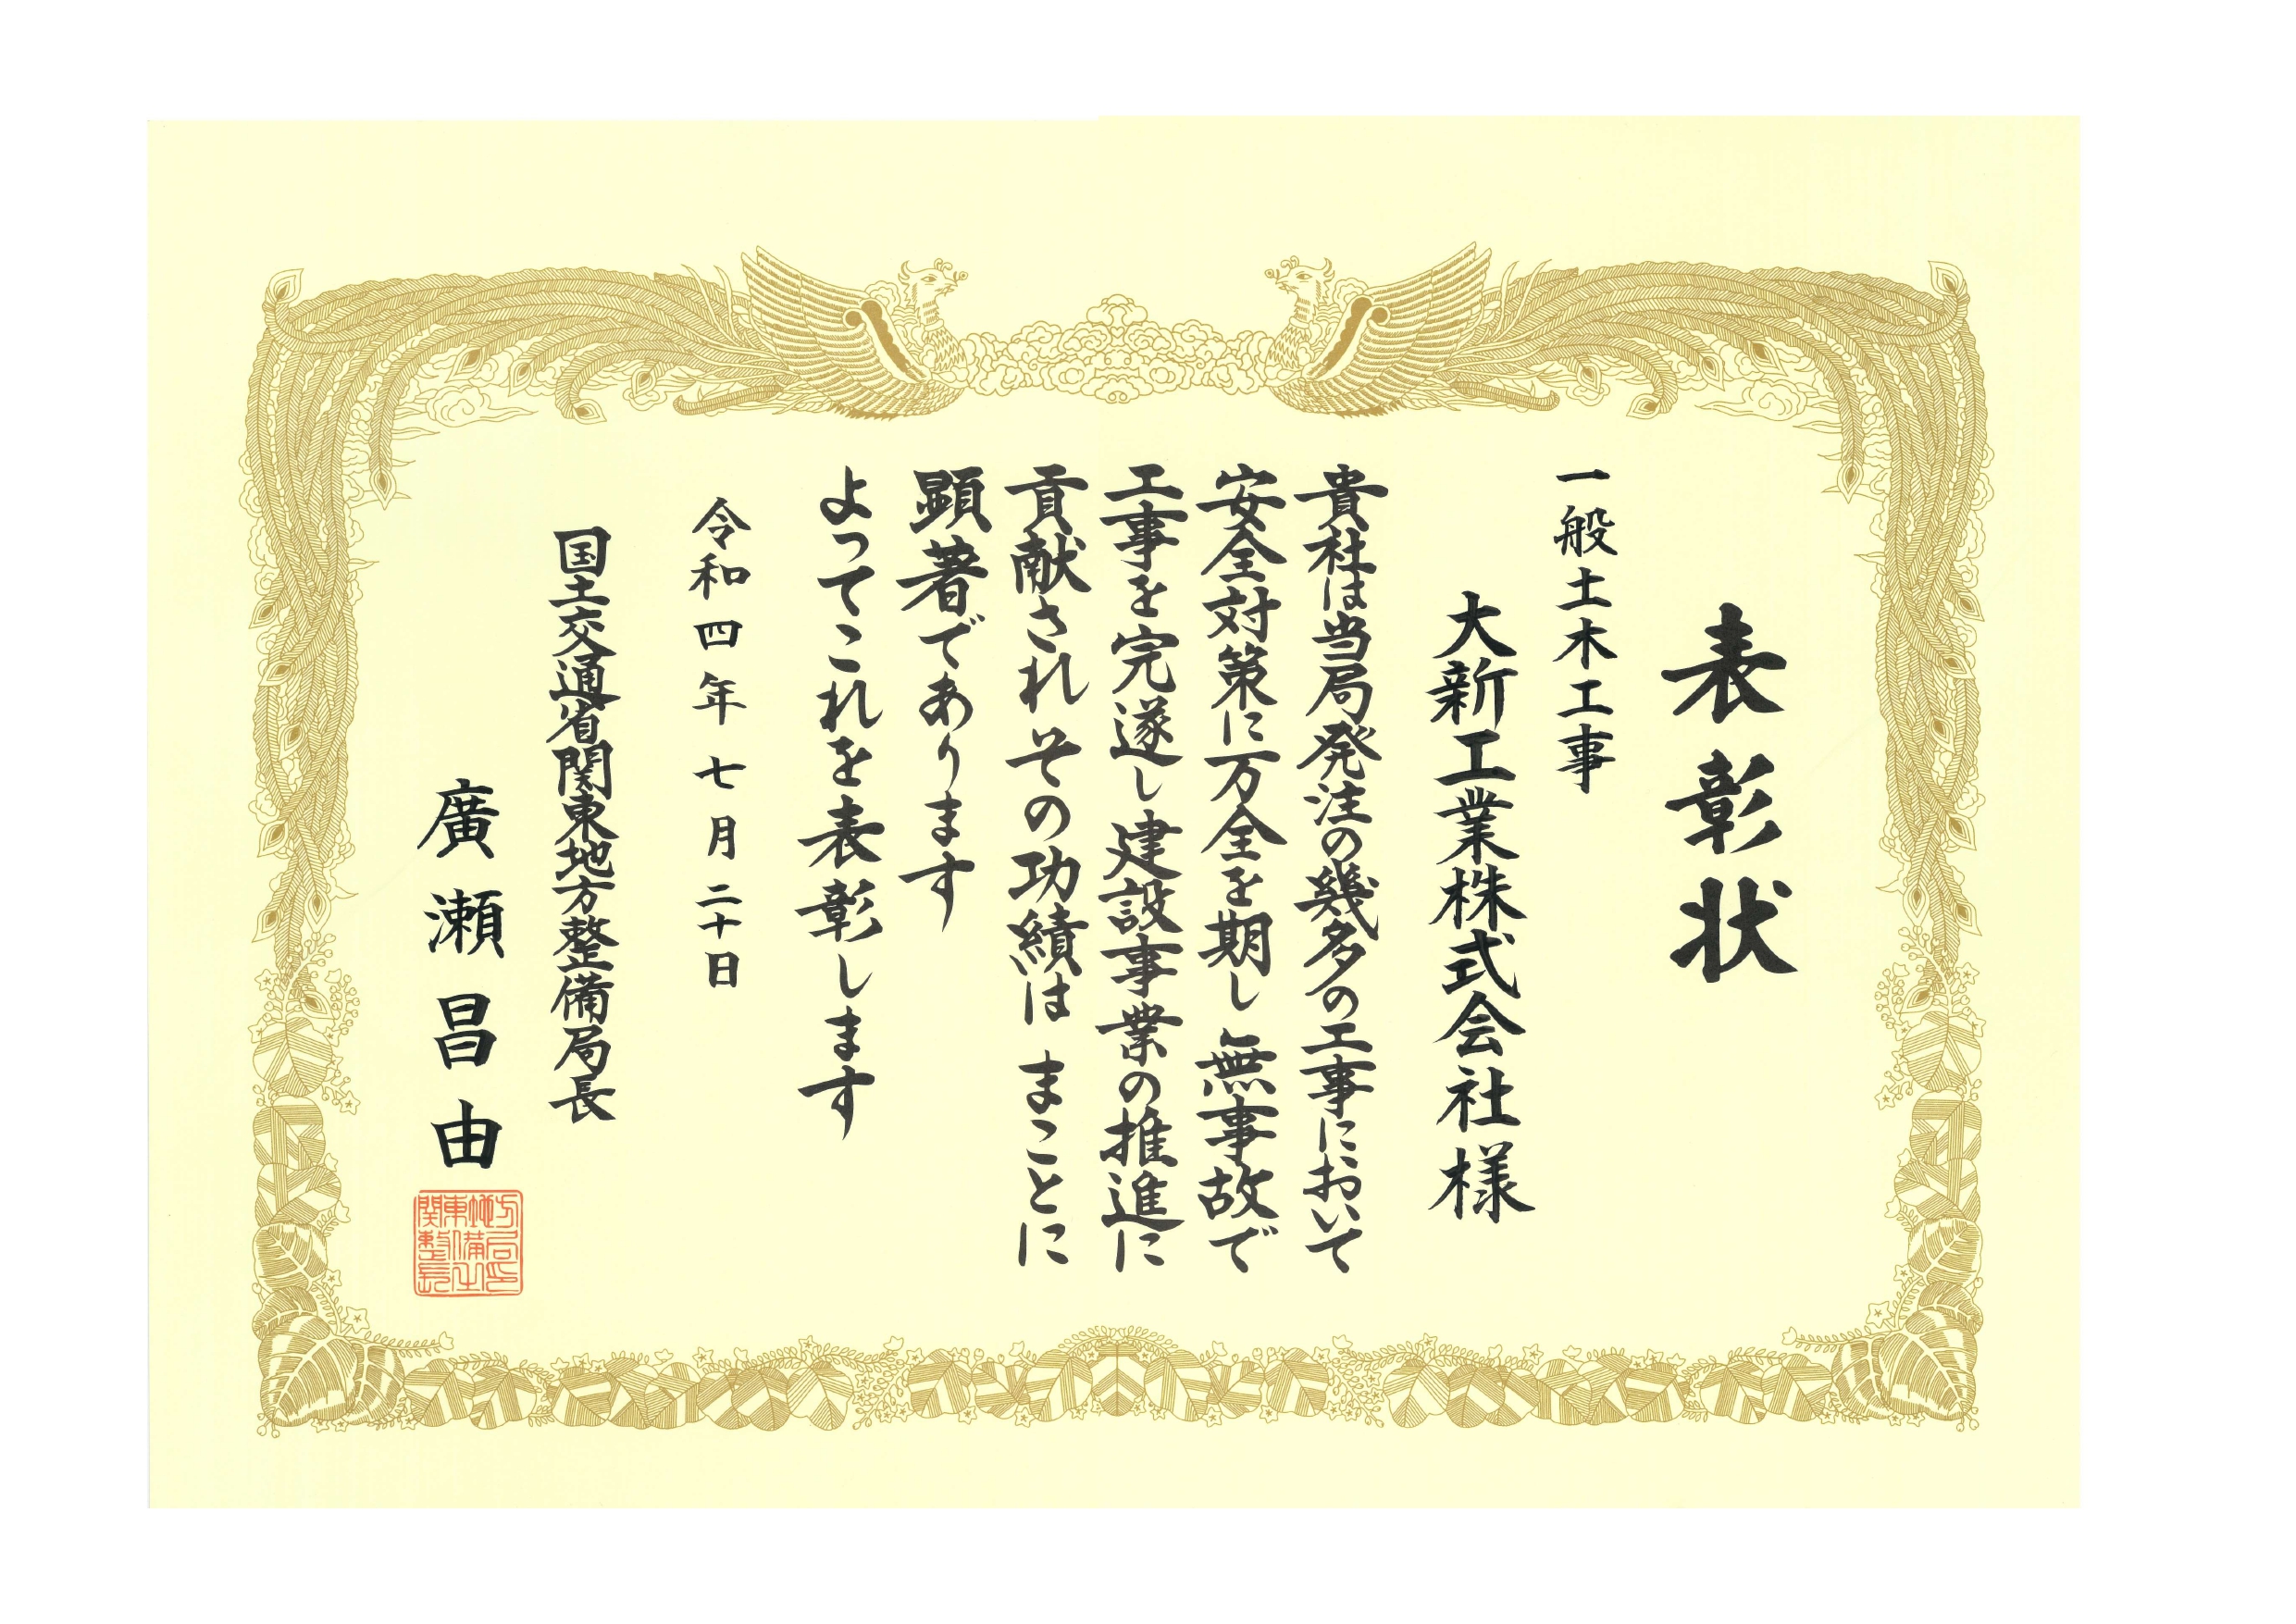 表彰状
一般土木工事
大新工業株式会社様
貴社は当局発注の幾多の工事において
安全対策に万全を期し無事故で
工事を完遂し建設事業の推進に
貢献されその功績は まことに
顕著であります
よってこれを表彰します
令和四年七月二十日
国土交通省関東地方整備局長
廣瀬昌由
関東地方整備局長之印